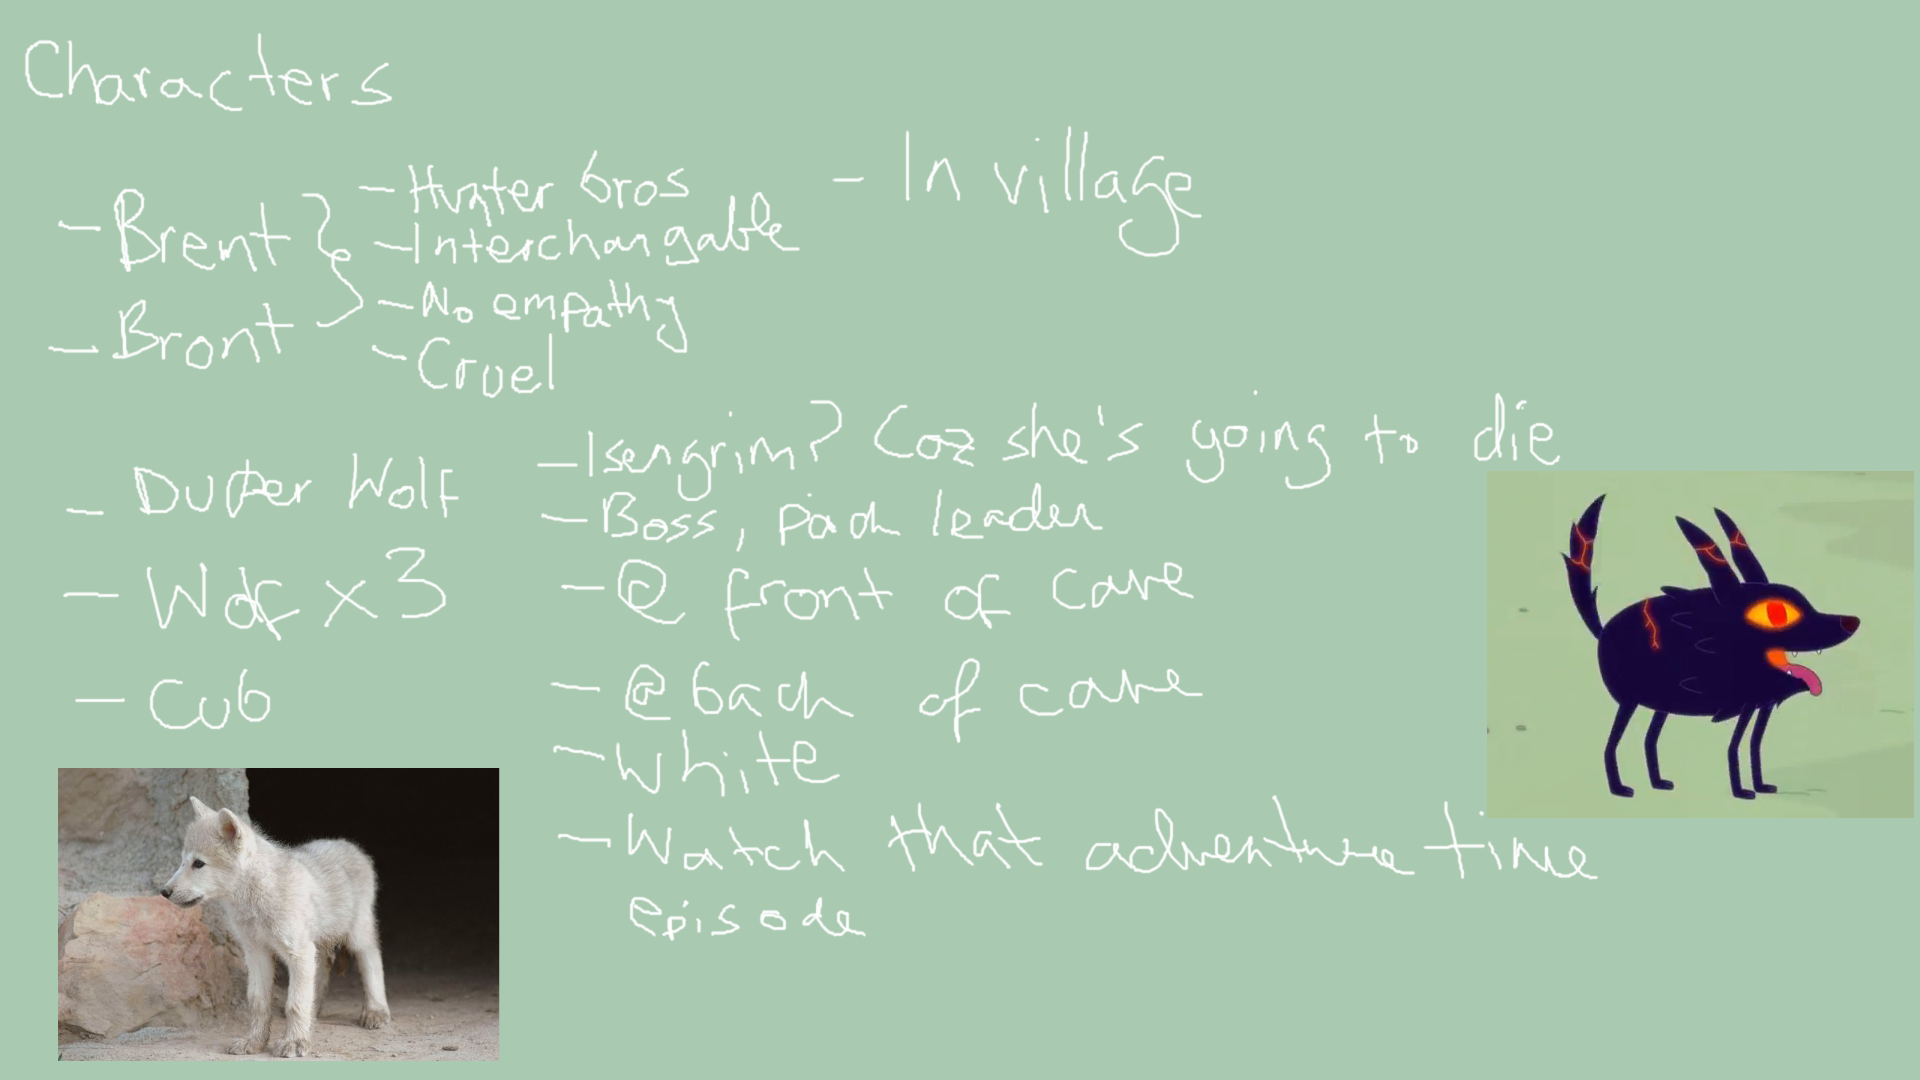 Characters
- Brent
- Bront
- Hunter bros
- Interchangable
- No empathy
- Cruel
- In village
- Wolf
- Isengrim? Coz she's going to die
- Boss, pack leader
- Wolf x3
- @ front of cave
- Cub
- @ back of cave
- White
- Watch that adventure time
episode